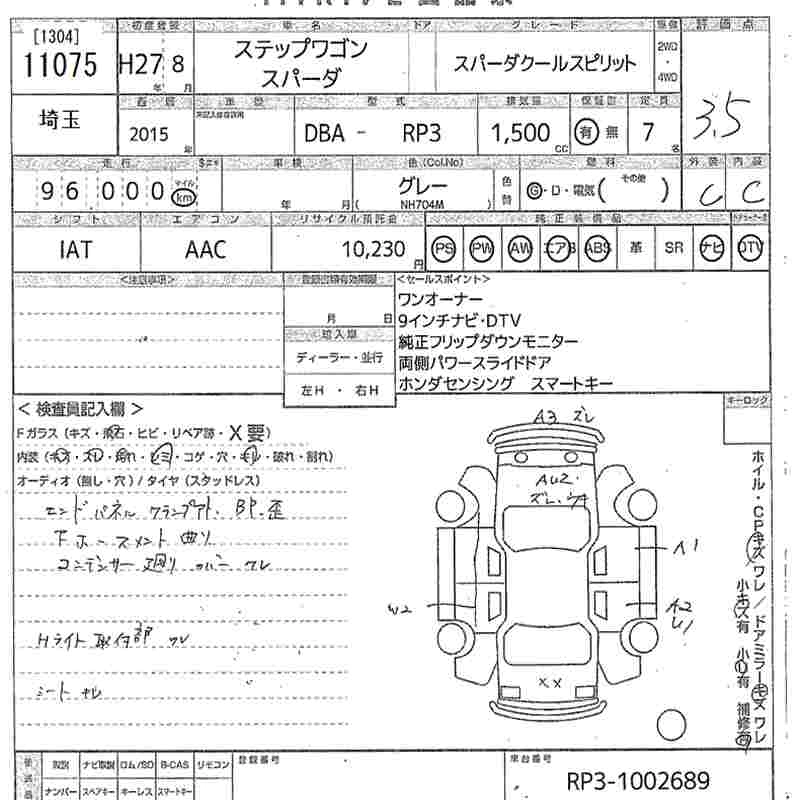 [1304]
11075
初度登録
H27 8
年 月
車名
ステップワゴン
スパーダ
ドア
グレード
スパーダクールスピリット
駆動
2WD
・
4WD
評価点
3.5
埼玉
2015
年
車歴
型式
DBA - RP3
排気量
1,500
CC
保証書
有 無
定員
7
名
走行
96 000
マイル
km
車検
年 月
色(Col.No)
グレー
( NH704M )
色替
燃料
G・D・電気( その他 )
外装
C
内装
C
シフト
IAT
エアコン
AAC
リサイクル預託金
10,230
円
純正装備品
PS PW AW エアB ABS 革 SR ナビ DTV
<注意事項>
月 日
輸入車
ディーラー・並行
左H ・ 右H
<セールスポイント>
ワンオーナー
9インチナビ・DTV
純正フリップダウンモニター
両側パワースライドドア
ホンダセンシング スマートキー
<検査員記入欄>
Fガラス (キズ・飛石・ヒビ・リペア跡・X要)
内装 (キズ・スレ・汚れ・シミ・コゲ・穴・キレ・破れ・割れ)
オーディオ (無し・穴) / タイヤ (スタッドレス)
エンドパネル クランプ外. BP. 歪
下ホースメント 曲り
コンデンサー廻り カバー ワレ
Hライト取付部 ワレ
シート キレ
キーロック
A3 ズレ
AU2.
ズレ.
A1
W2
A2
XX
ホイル・CPキズワレ/ドアミラーキズワレ
小キズ有 小凹有 補修有
取説 ナビ取説 ロム/SD B-CAS リモコン
ナンバー スペアキー キーレス スマートキー
登録番号
車台番号
RP3-1002689